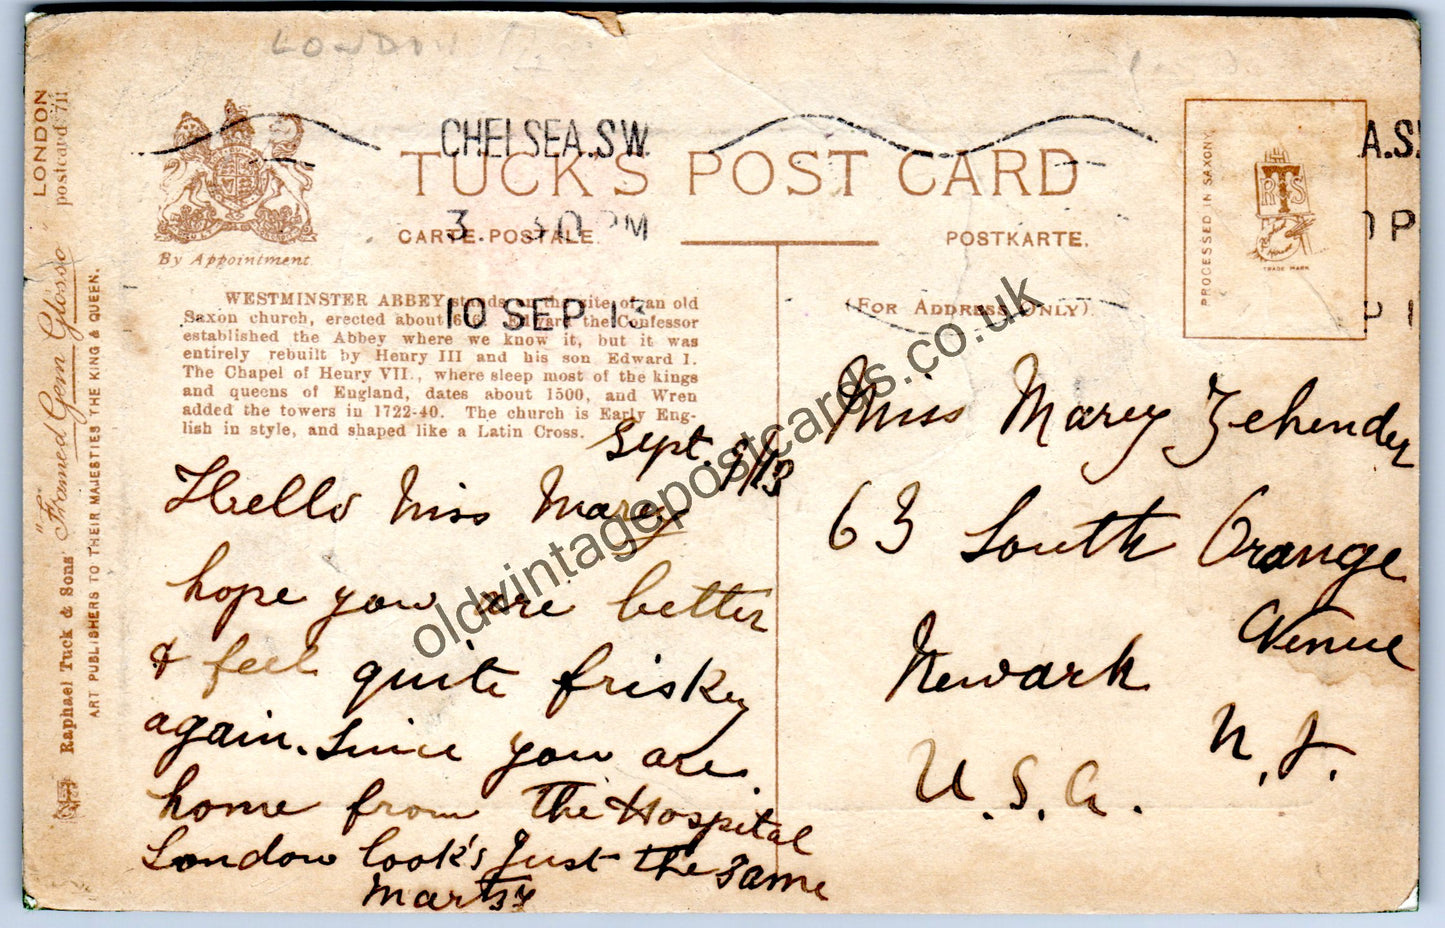 LONDON
CHELSEA.S.W.
3. 30 PM
10 SEP 13
TUCK'S POST CARD
CARTE POSTALE.
POSTKARTE.
(FOR ADDRESS ONLY)
By Appointment.
PROCESSED IN SAXONY.
RTS
TRADE MARK
A.S.
P 1
LONDON
postcard 711
"Framed Gem Glosso"
Raphael Tuck & Sons'
ART PUBLISHERS TO THEIR MAJESTIES THE KING & QUEEN.
WESTMINSTER ABBEY stands on the site of an old
Saxon church, erected about 616. Edward the Confessor
established the Abbey where we know it, but it was
entirely rebuilt by Henry III and his son Edward I.
The Chapel of Henry VII., where sleep most of the kings
and queens of England, dates about 1500, and Wren
added the towers in 1722-40. The church is Early Eng-
lish in style, and shaped like a Latin Cross.
Sept. 9/13
Hello Miss Marey
hope you are better
& feel quite frisky
again. Since you are
home from The Hospital
London look's Just The same
Marey Zehender
Miss
63 South Orange
Avenue
Newark
N. J.
U. S. A.
oldvintagepostcards.co.uk